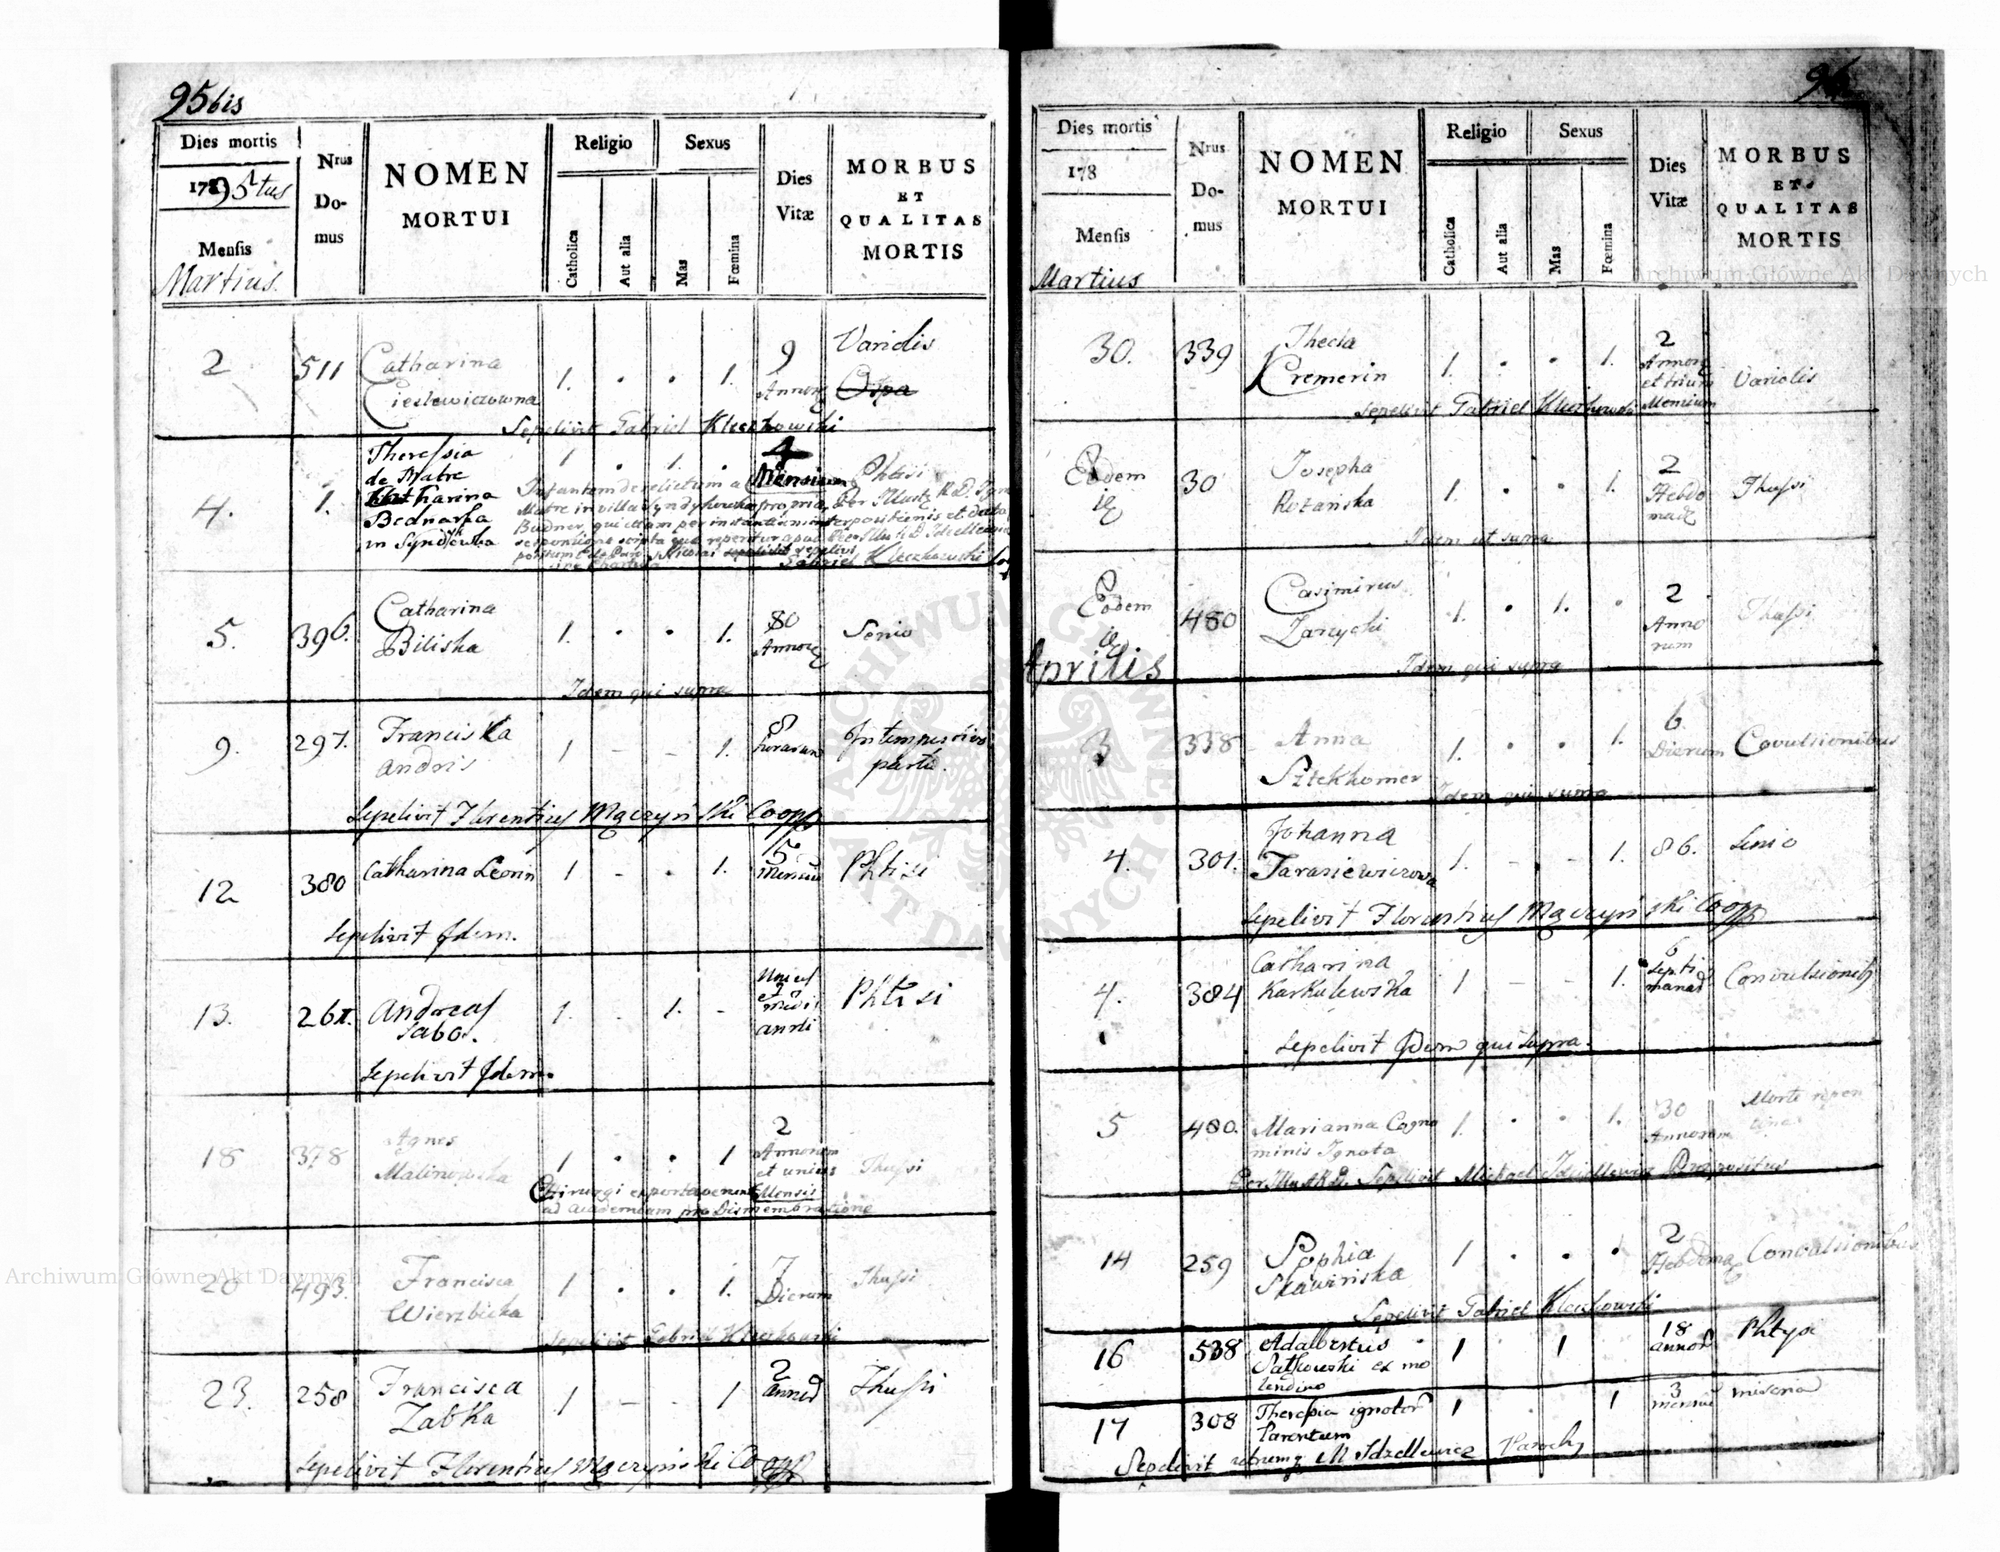 95 bis
Dies mortis
Nrus Domus
NOMEN MORTUI
Religio
Sexus
Dies Vitæ
MORBUS ET QUALITAS MORTIS
1795tus
Mensis
Martius.
Catholica
Aut alia
Mas
Fœmina
2 511 Catharina Cieslewiczowna 1. . . 1. 9 Annorum Variolis Ospa
Sepelivit Gabriel Kleczkowski
4. 1. Theressia de Matre Catharina Bednarska in 1 . 1. . 4 Mensium Phtisi
Infantem derelictum a
Matre in villa
5. 396. Catharina Biliska 1. . . 1. 80 Annorum Senio
Idem qui supra
9. 297. Franciska Andris 1 - - 1. 8 horarum Intempestivo partu.
Sepelivit Florentius Mączyński Coops
12 380 Catharina Leonin 1 - . 1. 5 Mensium Phtisi
Sepelivit Idem.
13. 261. Andreas Sabo. 1. . 1. - Unius et medii anni Phtisi
Sepelivit Idem.
18 378 Agnes Malinowska 1 . . 1 2 Annorum et unius Mensis Thussi
Chirurgi exportaverunt
ad Academiam pro Dismembratione
20 493. Francisca Wierzbicka 1 . . 1. 7 Dierum Thussi
Sepelivit Gabriel Kleczkowski
23. 258 Francisca Zabka 1 - - 1 2 annor Thussi
Sepelivit Florentius Mączyński Coops
96
Dies mortis
Nrus Domus
NOMEN MORTUI
Religio
Sexus
Dies Vitæ
MORBUS ET QUALITAS MORTIS
178
Mensis
Martius
Catholica
Aut alia
Mas
Fœmina
30. 339 Thecla Kremerin 1. . . 1. 2 Annorum et trium Mensium Variolis
Sepelivit Gabriel Kleczkowski
Eodem 30 Josepha Rozańska 1. . . 1. 2 Hebdomadæ Thussi
Idem ut supra
Eodem 480 Casimirus Zarzycki 1. . 1. . 2 Annorum Thussi
Idem qui supra
Aprilis
3 338 Anna Sztekhomer 1. . . 1. 6 Dierum Covulsionibus
Idem qui supra
4. 301. Johanna Tarasiewiczowa 1. - - 1. 86. Senio
Sepelivit Florentius Mączyński Coops
4. 384 Catharina Karkulewska 1 - - 1. 6 Septimanar Convulsionib
Sepelivit Idem qui supra.
5 480. Marianna Cognominis Ignota 1. . . 1. 30 Annorum Morte repentina
Sepelivit Michael Idzellewicz Præpositus
14 259 Sophia Skawińska 1 . . . 2 Hebdomadæ Convulsionibus
Sepelivit Gabriel Kleczkowski
16 538 Adalbertus Patkowski ex molendino 1 1 18 annor Phtysi
17 308 Theresia ignotor Parentum 1 . 1 3 mensiu miseria
Sepelivit utrumq M Idzellewicz Paroch
Archiwum Główne Akt Dawnych
Archiwum Główne Akt Dawnych
ARCHIWUM GŁÓWNE AKT DAWNYCH